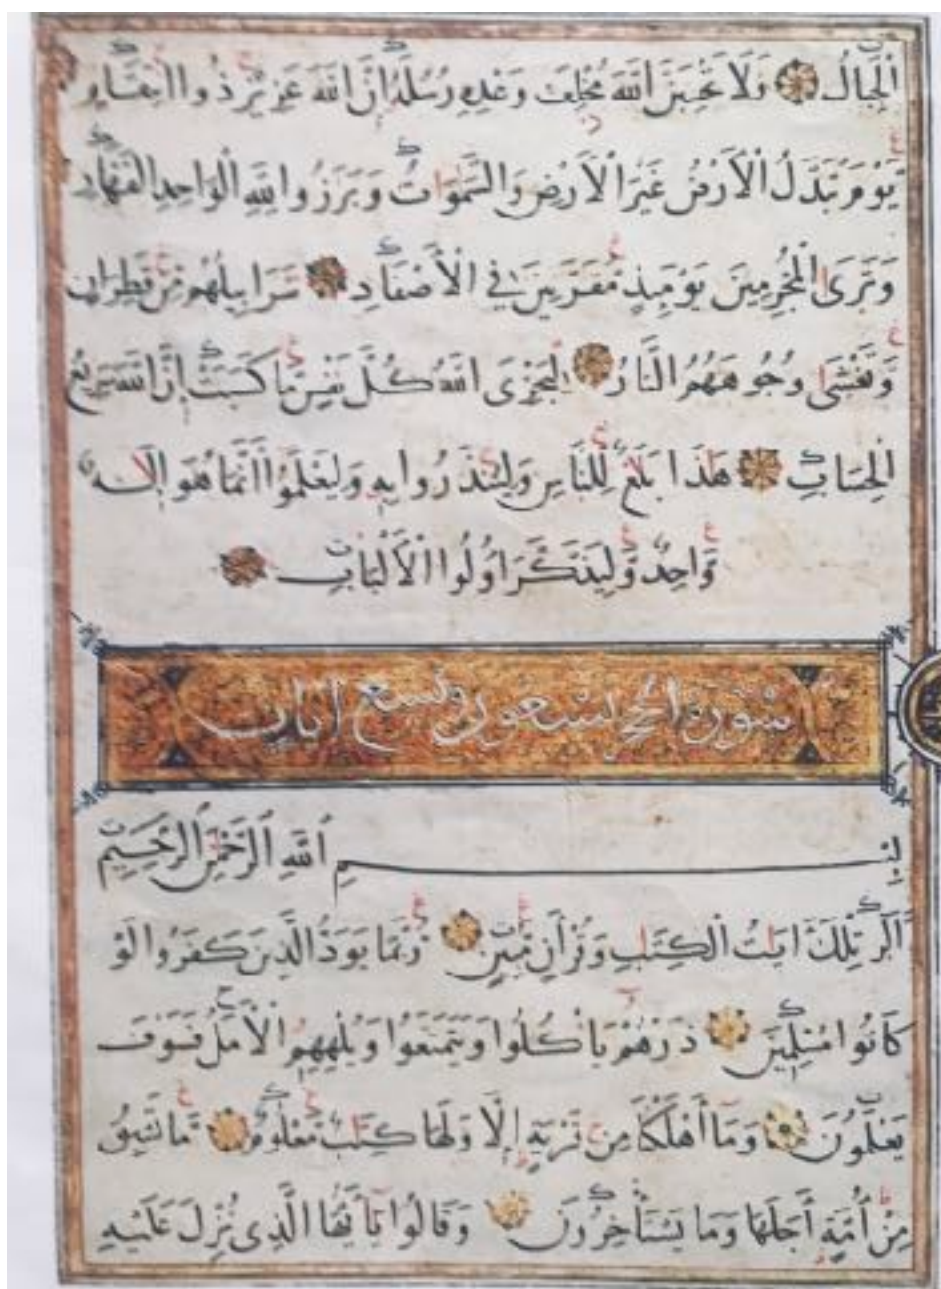 الْجِبَالُ فَلَا تَحْسَبَنَّ اللَّهَ مُخْلِفَ وَعْدِهِ رُسُلَهُ إِنَّ اللَّهَ عَزِيزٌ ذُو انْتِقَامٍ
يَوْمَ تُبَدَّلُ الْأَرْضُ غَيْرَ الْأَرْضِ وَالسَّمَوَاتُ وَبَرَزُوا لِلَّهِ الْوَاحِدِ الْقَهَّارِ
وَتَرَى الْمُجْرِمِينَ يَوْمَئِذٍ مُقَرَّنِينَ فِي الْأَصْفَادِ سَرَابِيلُهُمْ مِنْ قَطِرَانٍ
وَتَغْشَى وُجُوهَهُمُ النَّارُ لِيَجْزِيَ اللَّهُ كُلَّ نَفْسٍ مَا كَسَبَتْ إِنَّ اللَّهَ سَرِيعُ
الْحِسَابِ هَذَا بَلَاغٌ لِلنَّاسِ وَلِيُنْذَرُوا بِهِ وَلِيَعْلَمُوا أَنَّمَا هُوَ إِلَهٌ
وَاحِدٌ وَلِيَذَّكَّرَ أُولُوا الْأَلْبَابِ
سورة الحجر تسعون وتسع آيات
بِسْمِ اللَّهِ الرَّحْمَنِ الرَّحِيمِ
الر تِلْكَ آيَاتُ الْكِتَابِ وَقُرْآنٍ مُبِينٍ رُبَمَا يَوَدُّ الَّذِينَ كَفَرُوا لَوْ
كَانُوا مُسْلِمِينَ ذَرْهُمْ يَأْكُلُوا وَيَتَمَتَّعُوا وَيُلْهِهِمُ الْأَمَلُ فَسَوْفَ
يَعْلَمُونَ وَمَا أَهْلَكْنَا مِنْ قَرْيَةٍ إِلَّا وَلَهَا كِتَابٌ مَعْلُومٌ مَا تَسْبِقُ
مِنْ أُمَّةٍ أَجَلَهَا وَمَا يَسْتَأْخِرُونَ وَقَالُوا يَا أَيُّهَا الَّذِي نُزِّلَ عَلَيْهِ